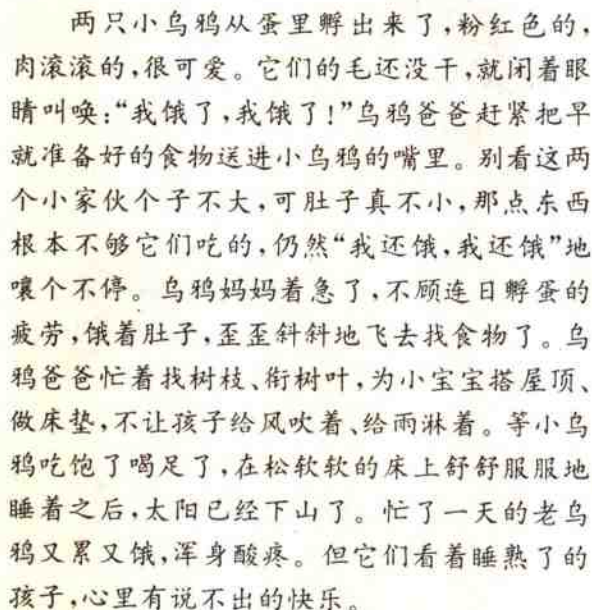 两只小乌鸦从蛋里孵出来了,粉红色的,
肉滚滚的,很可爱。它们的毛还没干,就闭着眼
睛叫唤:“我饿了,我饿了!”乌鸦爸爸赶紧把早
就准备好的食物送进小乌鸦的嘴里。别看这两
个小家伙个子不大,可肚子真不小,那点东西
根本不够它们吃的,仍然“我还饿,我还饿”地
嚷个不停。乌鸦妈妈着急了,不顾连日孵蛋的
疲劳,饿着肚子,歪歪斜斜地飞去找食物了。乌
鸦爸爸忙着找树枝、衔树叶,为小宝宝搭屋顶、
做床垫,不让孩子给风吹着、给雨淋着。等小乌
鸦吃饱了喝足了,在松软软的床上舒舒服服地
睡着之后,太阳已经下山了。忙了一天的老乌
鸦又累又饿,浑身酸疼。但它们看着睡熟了的
孩子,心里有说不出的快乐。